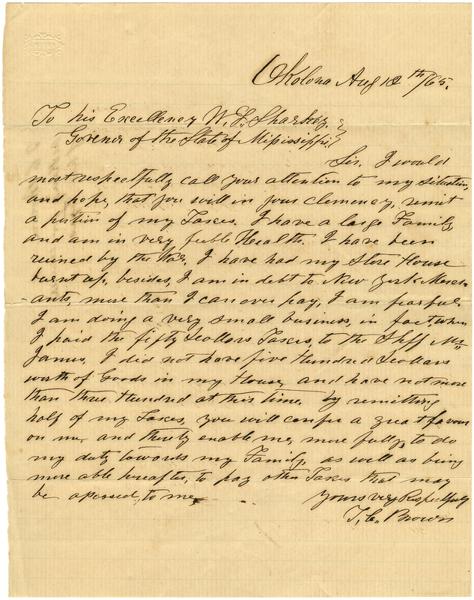 Okolona Aug 12th /65.
To his Excellency W. L. Sharkey
Govenor of the State of Mississippi
Sir, I would
most respectfully call your attention to my situation
and hope, that you will in your clemency, remit
a portion of my Taxes. I have a large Family,
and am in very feeble Health. I have been
ruined by the War. I have had my Store House
burnt up, besides, I am in debt to New York Merch-
ants, more than I can ever pay, I am fearful.
I am doing a very small business, in fact, when
I paid the fifty Dollars Taxes, to the Shff Mr
James, I did not have five Hundred Dollars
worth of Goods in my House, and have not more
than three Hundred at this time. by remitting
half of my Taxes, you will confer a great favour
on me, and thirby enable me, more fully, to do
my duty towards my Family, as well as being
more able hereafter, to pay other Taxes that may
be apersed, to me,
Yours very Respectfully
T. C. Brown